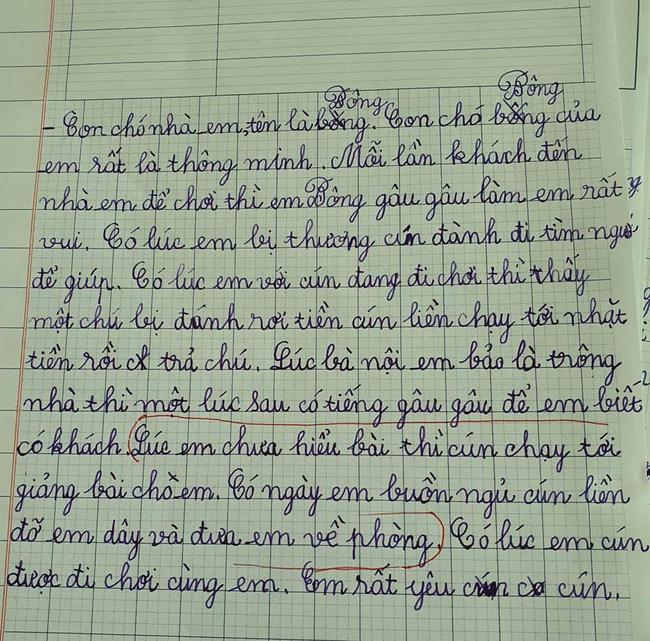 Bông Bông
- Con chó nhà em, tên là bông. Con chó bông của
em rất là thông minh. Mỗi lần khách đến
nhà em để chơi thì em Bông gâu gâu làm em rất
vui. Có lúc em bị thương cún đành đi tìm người
để giúp. Có lúc em với cún đang đi chơi thì thấy
một chú bị đánh rơi tiền cún liền chạy tới nhặt
tiền rồi trả chú. Lúc bà nội em bảo là trông
nhà thì một lúc sau có tiếng gâu gâu để em biết
có khách. Lúc em chưa hiểu bài thì cún chạy tới
giảng bài cho em. Có ngày em buồn ngủ cún liền
đỡ em dây và đưa em về phòng. Có lúc em cún
được đi chơi cùng em. Em rất yêu cún.